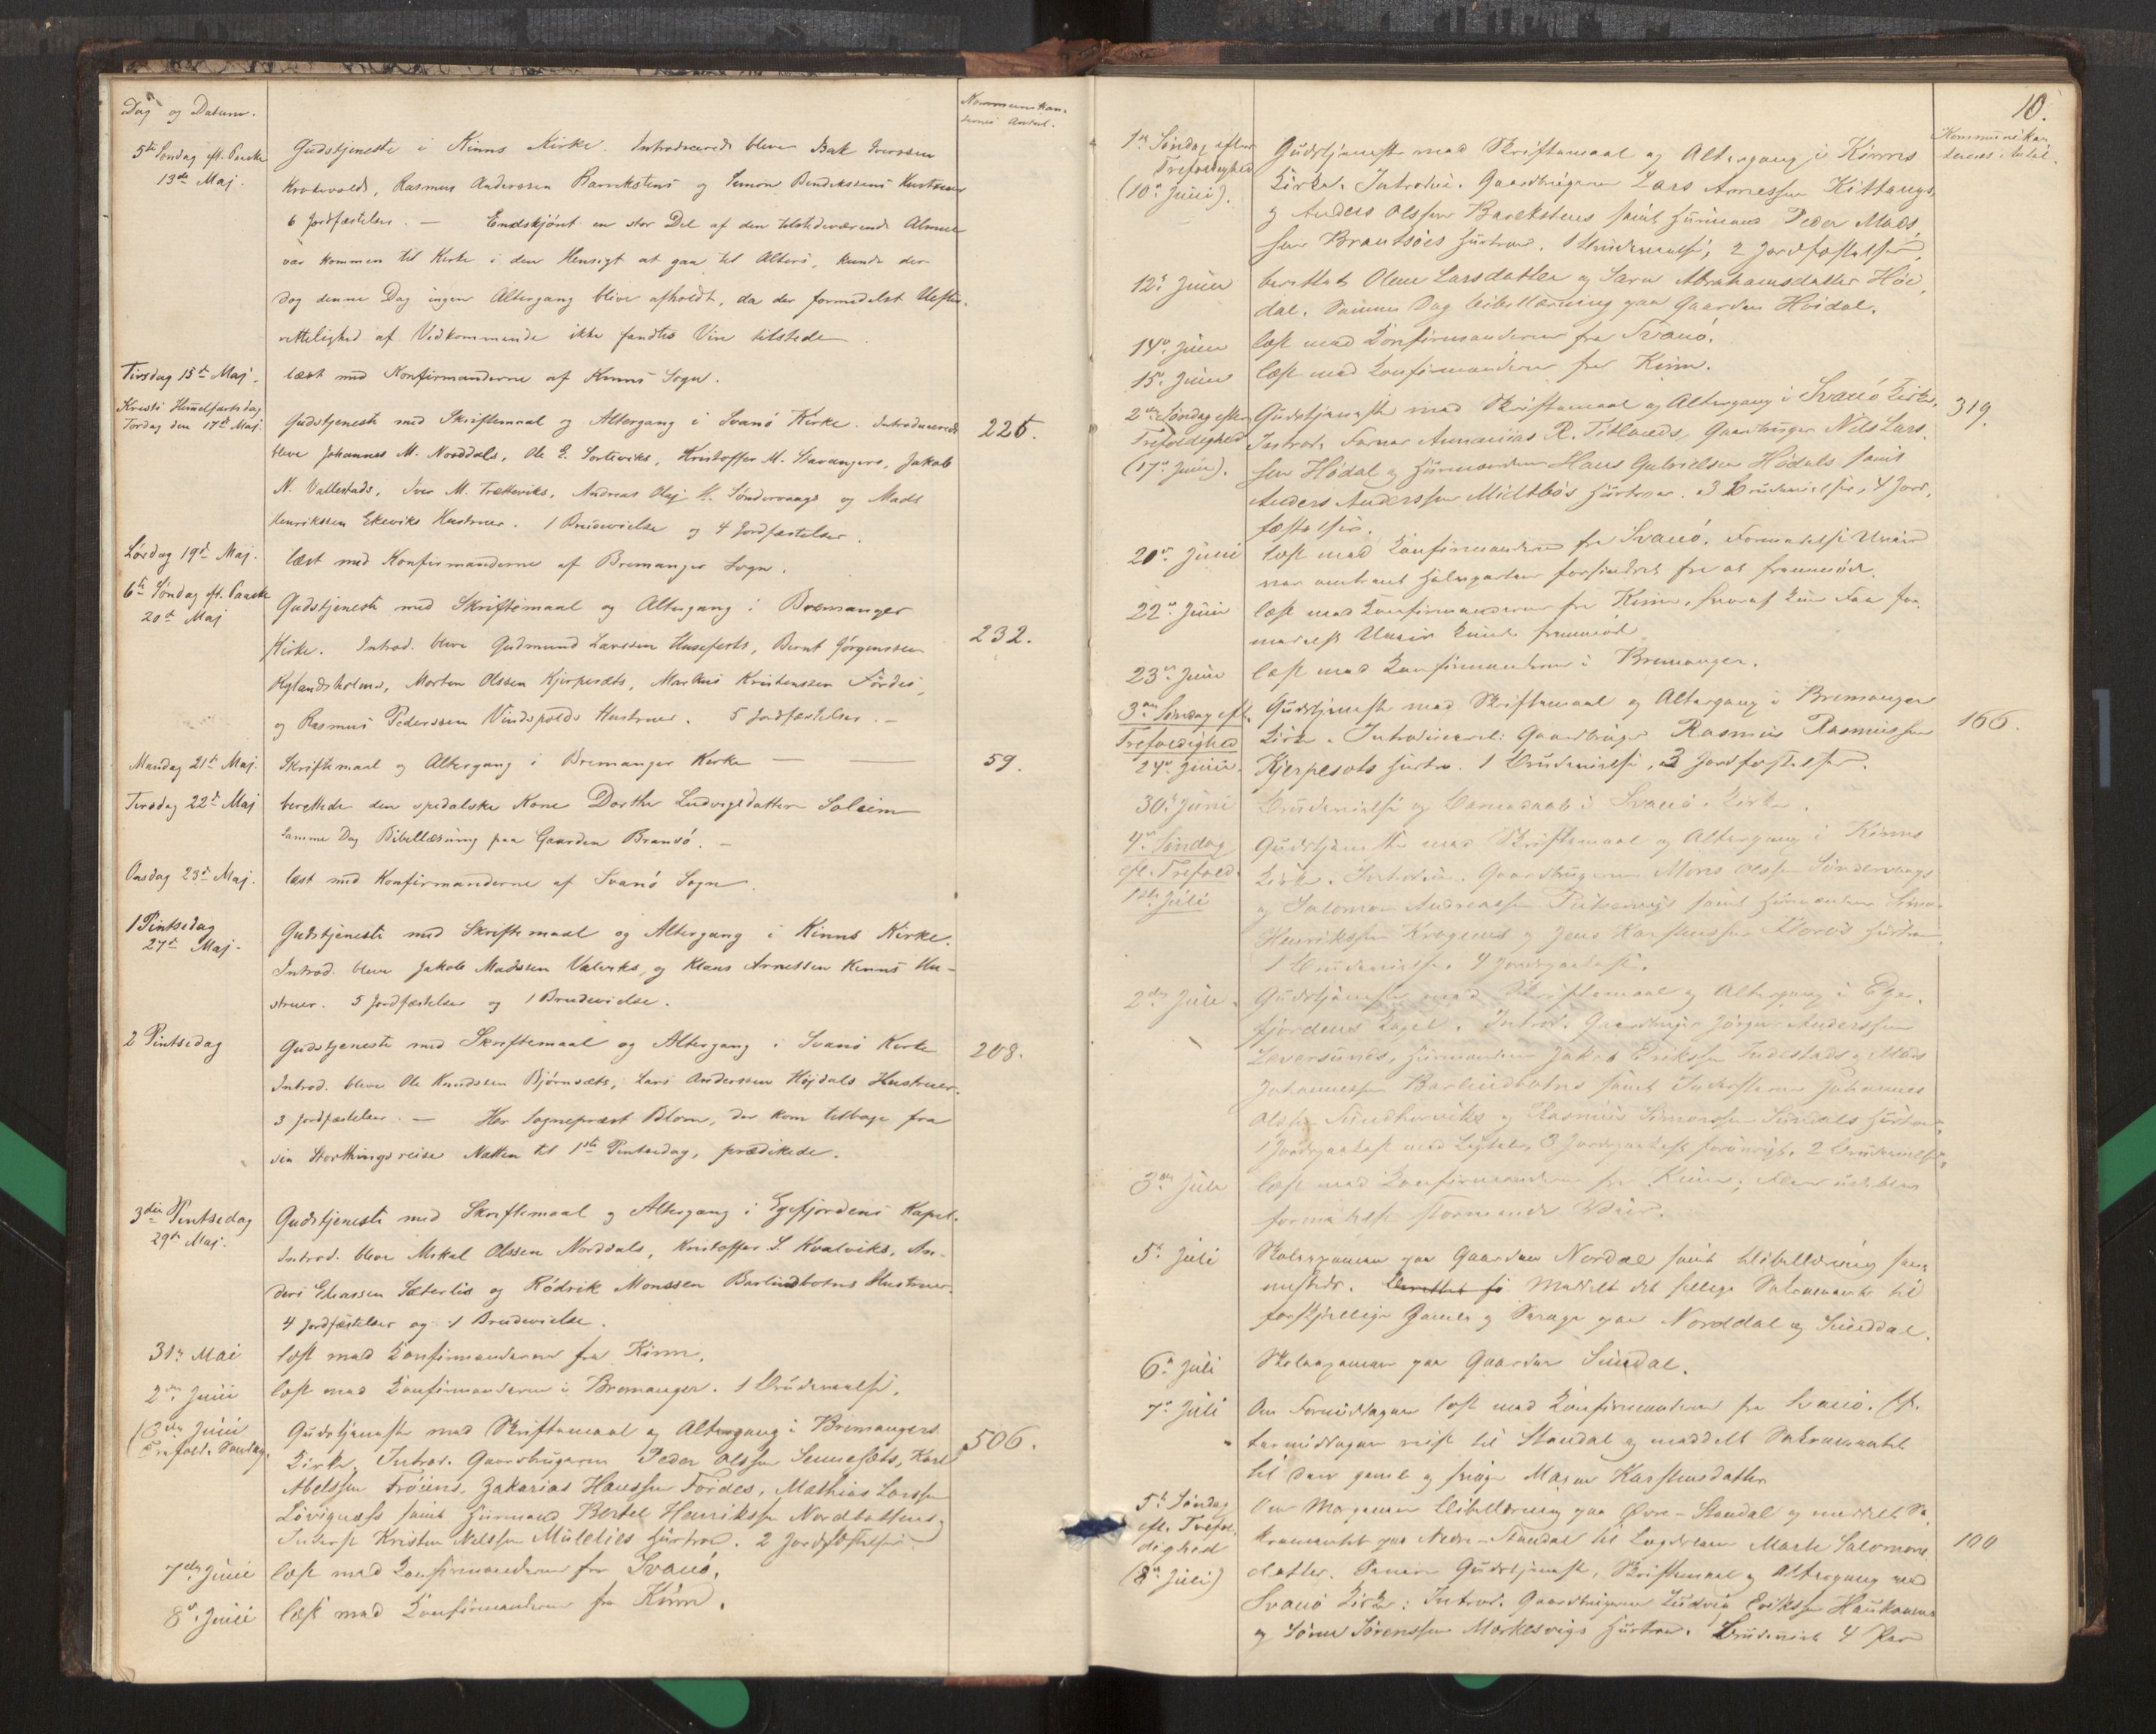 Dag og Datum.
Kommunikan-
ternes Antal.
5te Søndag eft. Paaske
13de Maj.
Gudstjeneste i Kinns Kirke. Introducerede bleve Isak Iverssen
Krokevolds, Rasmus Anderssen Barekstens og Simon Bendikssens Hustruer
6 Jordfæstelser. — Endskjönt en stor Del af den tilstedeværende Almue
var kommen til Kirke i den Hensigt at gaa til Alters, kunde der
dog denne Dag ingen Altergang blive afholdt, da der formedelst Uefter-
rettelighed af Vedkommende ikke fandtes Vin tilstede.
Tirsdag 15de Maj.
læst med Konfirmanderne af Kinns Sogn.
Kristi Himmelfartsdag
Torsdag den 17de Maj.
Gudstjeneste med Skriftemaal og Altergang i Svanö Kirke. Introducerede
225.
bleve Johannes M. Norddals, Ole E. Sorteviks, Kristoffer M. Stavangers, Jakob
N. Vallestads, Iver M. Trætteviks, Andreas Olaj H. Söndervaags og Mads
Henrikssen Ekeviks Hustruer. 1 Brudevielse og 4 Jordfæstelser.
Lördag 19de Maj.
læst med Konfirmanderne af Bremanger Sogn.
6te Söndag eft. Paaske
20de Maj
Gudstjeneste med Skriftemaal og Altergang i Bremanger
232.
Kirke. Introd. bleve Gudmund Larssen Husefests, Bernt Jörgenssen
Rylandsholms, Morten Olssen Kjerpesæts, Markus Kristenssen Fördes,
og Rasmus Pederssen Vindspolds Hustruer. 5 Jordfæstelser. —
Mandag 21de Maj.
Skriftemaal og Altergang i Bremanger Kirke —
59.
Tirsdag 22de Maj
berettede den spedalske Kone Dorthe Ludvigsdatter Soleim
Samme Dag Bibellæsning paa Gaarden Bransö. —
Onsdag 23de Maj.
læst med Konfirmanderne af Svanö Sogn.
1 Pintsedag
27de Maj.
Gudstjeneste med Skriftemaal og Altergang i Kinns Kirke.
Introd. bleve Jakob Madssen Valviks, og Klaus Arnessen Kinns Hu-
struer. 5 Jordfæstelser og 1 Brudevielse.
2 Pintsedag
Gudstjeneste med Skriftemaal og Altergang i Svanö Kirke
208.
Introd. bleve Ole Knudssen Björnsæts, Lars Anderssen Höjdals Hustruer.
3 Jordfæstelser. — Her Sognepræst Blom, der kom tilbage fra
sin Storthingsreise Natten til 1ste Pintsedag, prædikede.
3die Pintsedag
29de Maj.
Gudstjeneste med Skriftemaal og Altergang i Egefjordens Kapel.
Introd. bleve Mikal Olssen Norddals, Kristoffer S. Kvalviks, An-
ders Eliassen Sæterlis og Rödrik Monssen Barlindbotns Hustruer.
4 Jordfæstelser og 1 Brudevielse.
31te Mai
læst med Konfirmanderne fra Kinn.
2den Juni
læst med Konfirmanderne i Bremanger. 1 Brudevielse.
(3die Juni
Trefold. Söndag.
Gudstjeneste med Skriftemaal og Altergang i Bremangers
506.
Kirke. Introd. Gaardbrugerne Peder Olssen Sennesets, Karl
Abelssen Fröiens, Zakarias Hanssen Fördes, Mathias Larssen
Lövignæss samt Huusmand Bertel Henrikssen Nordbottens,
Inderst Kristen Nilssen Mulelies Hustruer. 2 Jordfæstelser.
7de Juni
læst med Konfirmanderne fra Svanö.
8de Juni
læst med Konfirmanderne fra Kinn.
10.
Kommunikan
ternes Antal.
1ste Söndag efter
Trefoldighed
(10de Juni).
Gudstjeneste med Skriftemaal og Altergang i Kinns
Kirke. Introdu. Gaardbrugerne Lars Arnessen Kittangs,
og Anders Olssen Barekstens samt Huusmand Peder Mads-
sen Brantsöes Hustruer. 1 Brudevielse, 2 Jordfæstelser.
12te Juni
berettet Oline Larsdatter og Sara Abrahamsdatter Höi-
dal. Samme Dag bibellæsning paa Gaarden Höidal.
14de Juni
læst med Konfirmanderne fra Svanö.
15de Juni
læst med Konfirmanderne fra Kinn.
2den Söndag efter
Trefoldighed
(17de Juni).
Gudstjeneste med Skriftemaal og Altergang i Svanö Kirke.
319.
Introd. Ananias R. Titlands, Gaardbruger Nils Lars-
sen Hödal og Huusmændene Hans Gabrielsen Hödals samt
Anders Anderssen Midtbös Hustruer. 3 Brudevielser, 4 Jord-
fæstelser.
20de Juni
læst med Konfirmanderne fra Svanö. Formedelst Uveir
var omtrent Halvparten forhindret fra at fremmöde.
22de Juni
læst med Konfirmanderne fra Kinn, hvoraf kun Faa for-
medelst Uveir kunde fremmöde.
23de Juni
læst med Konfirmanderne i Bremanger.
3die Söndag eft.
Trefoldighed
24de Juni.
Gudstjeneste med Skriftemaal og Altergang i Bremanger
165.
Kirke. Introduceret: Gaardbruger Rasmus Rasmussen
Kjerpesets Hustru. 1 Brudevielse, 3 Jordfæstelser.
30te Juni
Brudevielse og Barnedaab i Svanö Kirke.
4de Söndag
eft. Trefold.
1ste Juli
Gudstjeneste med Skriftemaal og Altergang i Kinns
Kirke. Introdu. Gaardbrugerne Mons Olssen Söndervaags
og Salomon Andreassen samt Huusmændene
Henrikssen Kragenes og Jens Karstenssen Florös Hustruer.
1 Brudevielse. 4 Jordpaakast.
2den Juli.
Gudstjeneste med Skriftemaal og Altergang i Ege-
fjordens Kapel. Introd. Gaardbruger Jörgen Anderssen
Leversunds, Huusmændene Jakob Erikssen Indestads og Mads
Johannessen Barlindbotns samt Inderstene Johannes
Olssen og Rasmus Simonssen Sundals Hustruer.
1 Jordpaakast med Ligtale, 3 Jordpaakast forövrigt. 2 Brudevielser.
3die Juli
læst med Konfirmanderne fra Kinn; Flere udebleve
formedelst stormende Veir.
5te Juli
Skoleexamen paa Gaarden Nordal samt bibellæsning sam-
mesteds. Meddelt det hellige Sakramente til
forskjellige Gamle og Svage paa Norddal og Sunddal.
6te Juli
Skoleexamen paa Gaarden Sundal.
7de Juli
Om Formiddagen læst med Konfirmanderne fra Svanö. Ef-
termiddagen reist til Standal og meddelt Sakramentet
til den gamle og svage Karstensdatter
5te Söndag
eft. Trefol-
dighed
(8de Juli)
Om Morgenen bibellæsning paa Övre-Standal og meddelt Sa-
kramentet paa Nedre-Standal til Marte Salomons-
100
datter. Senere Gudstjeneste, Skriftemaal og Altergang ved
Svanö Kirke: Introd. Gaardbrugerne Ludvig Erikssen Haukaaens
og Sörens Sörenssen Morkesvigs Hustruer. Brudeviet 4 Par